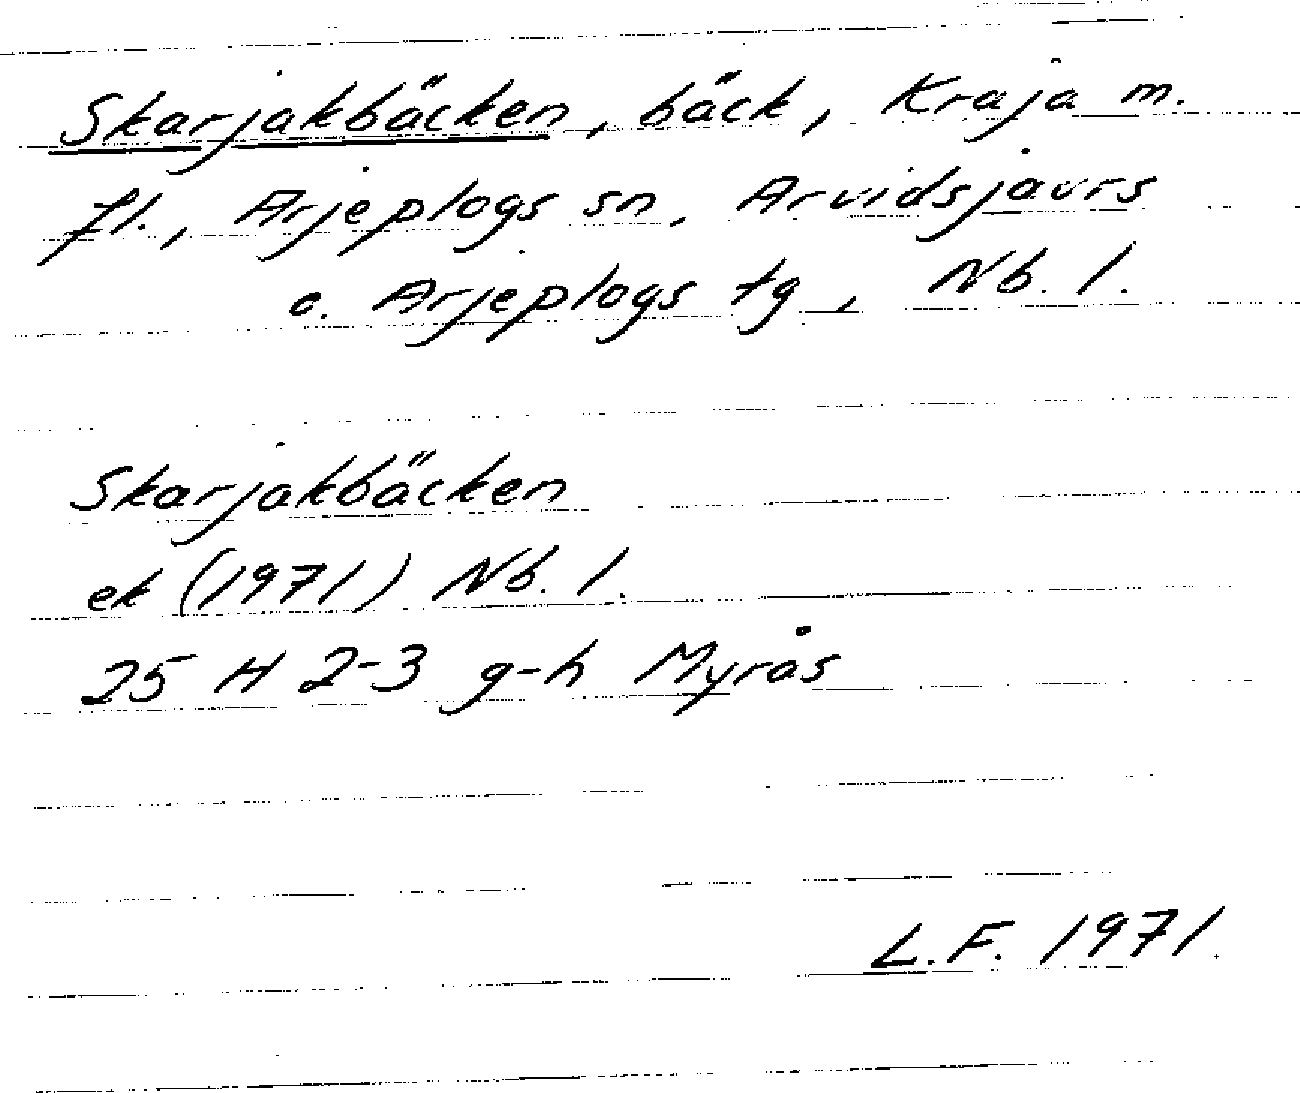 Skarjakbäcken, bäck, Kraja m.
fl., Arjeplogs sn, Arvidsjaurs
o. Arjeplogs tg, Nb. l.
Skarjakbäcken
ek (1971) Nb. l.
25 H 2-3 g-h Myrås
L.F. 1971.